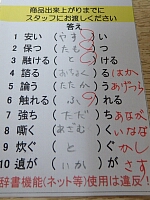 商品出来上がりまでに
スタッフにお渡しください
答え
1 安い (やす)
2 保つ (たも)
3 融ける (と)
4 諮る ( ) はか
5 論う (たたか) あげつら
6 触れる (ふ)
7 強ち (だち) あなが
8 嘶く (あざむ) いなな
9 炊ぐ (と) かし
10 遉が (いか) さす
辞書機能(ネット等)使用は違反!